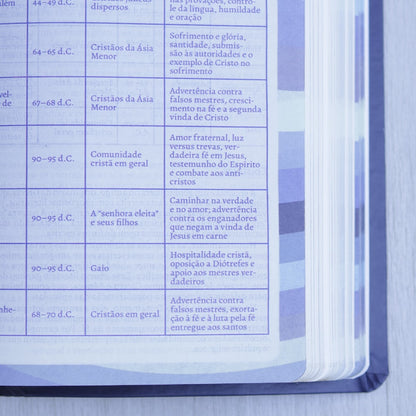 nas provações, contro-
além
44–49 d.C.
dispersos
le da língua, humildade
e oração
64–65 d.C.
Cristãos da Ásia
Menor
Sofrimento e glória,
santidade, submis-
são às autoridades e o
exemplo de Cristo no
sofrimento
vel-
de
67–68 d.C.
Cristãos da Ásia
Menor
Advertência contra
falsos mestres, cresci-
mento na fé e a segunda
vinda de Cristo
90–95 d.C.
Comunidade
cristã em geral
Amor fraternal, luz
versus trevas, ver-
dadeira fé em Jesus,
testemunho do Espírito
e combate aos anti-
cristos
90–95 d.C.
A "senhora eleita"
e seus filhos
Caminhar na verdade
e no amor; advertência
contra os enganadores
que negam a vinda de
Jesus em carne
90–95 d.C.
Gaio
Hospitalidade cristã,
oposição a Diótrefes e
apoio aos mestres ver-
dadeiros
nhe-
68–70 d.C.
Cristãos em geral
Advertência contra
falsos mestres, exorta-
ção à fé e à luta pela fé
entregue aos santos